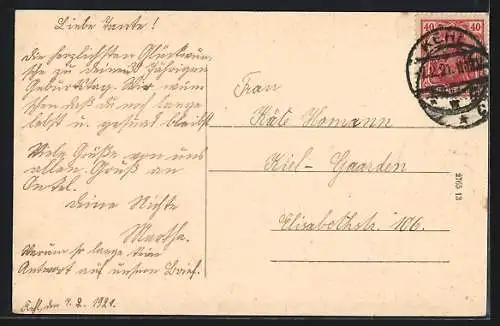 Liebe Tante!
Die herzlichsten Glückwün-
sche zu deinem Jährigen
Geburtstag. Wir wün
schen daß du noch lange
lebst u. gesund bleibst
Viele Grüße von uns
allen. Gruß an
Onkel.
Deine Nichte
Martha.
Warum so lange keine
Antwort auf unsern Brief.
Kehl, den 9. 2. 1921.
40 40
KEHL
Frau
Käte Homann
Kiel-Gaarden
Elisabethstr. 106.
2765 13